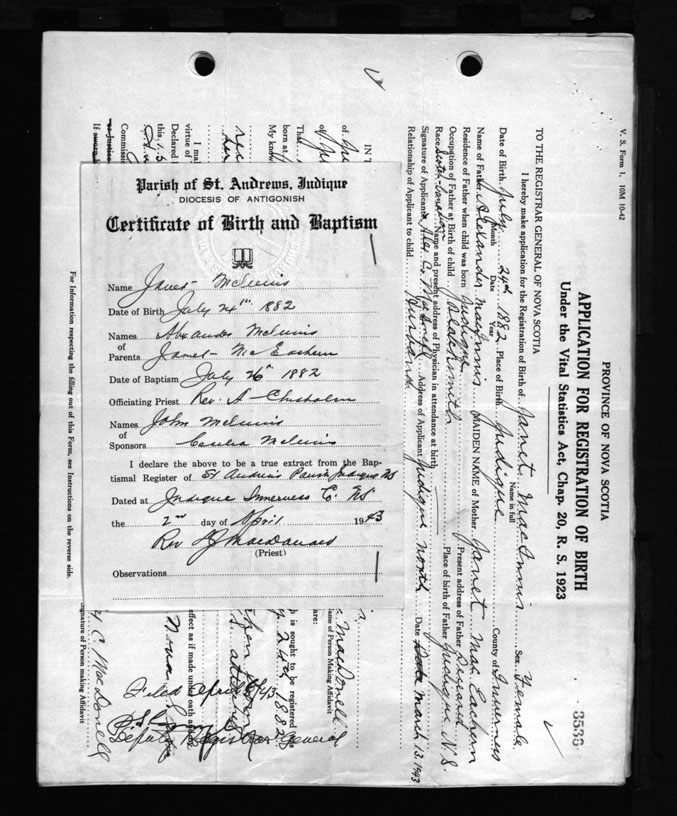 V. S. Form 1, 10M 10-42
PROVINCE OF NOVA SCOTIA
APPLICATION FOR REGISTRATION OF BIRTH
Under the Vital Statistics Act, Chap. 20, R. S. 1923
3536
TO THE REGISTRAR GENERAL OF NOVA SCOTIA
I hereby make application for the Registration of Birth of Janet MacInnis Sex Female
Name in full
Date of Birth July 24th 1882 Place of Birth Judique County of Inverness
Month Date Year
Name of Father Alexander MacInnis MAIDEN NAME of Mother Janet MacEachern
Residence of Father when child was born Judique Present address of Father
Occupation of Father at Birth of child Blacksmith Place of birth of Father Judique N.S.
Race Name and present address of Physician in attendance at birth
Signature of Applicant Alex C. MacDonell Address of Applicant Judique North Date March 13, 1943
Relationship of Applicant to child Husband
Parish of St. Andrews, Judique
DIOCESE OF ANTIGONISH
Certificate of Birth and Baptism
Name Janet McInnis
Date of Birth July 24th 1882
Names Alexander McInnis
of
Parents Janet McEachern
Date of Baptism July 26th 1882
Officiating Priest Rev. A. Chisholm
Names John McInnis
of
Sponsors McInnis
I declare the above to be a true extract from the Bap-
tismal Register of St Andrews Parish Judique NS
Dated at Judique Inverness C. NS
the 2nd day of April 1943
Rev MacDonald
(Priest)
Observations
MacDonell
Name of Person Making Affidavit
is sought to be registered
24th
effect as if made under oath
Nova
Filed April 43
Deputy Registrar General
C. MacDonell
Signature of Person making Affidavit
For Information respecting the filling out of this Form, see Instructions on the reverse side.